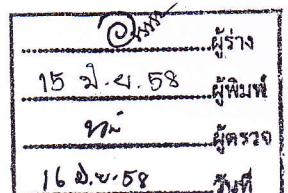 ผู้ร่าง
15 มิ.ย. 58 ผู้พิมพ์
ผู้ตรวจ
16 มิ.ย. 58 วันที่